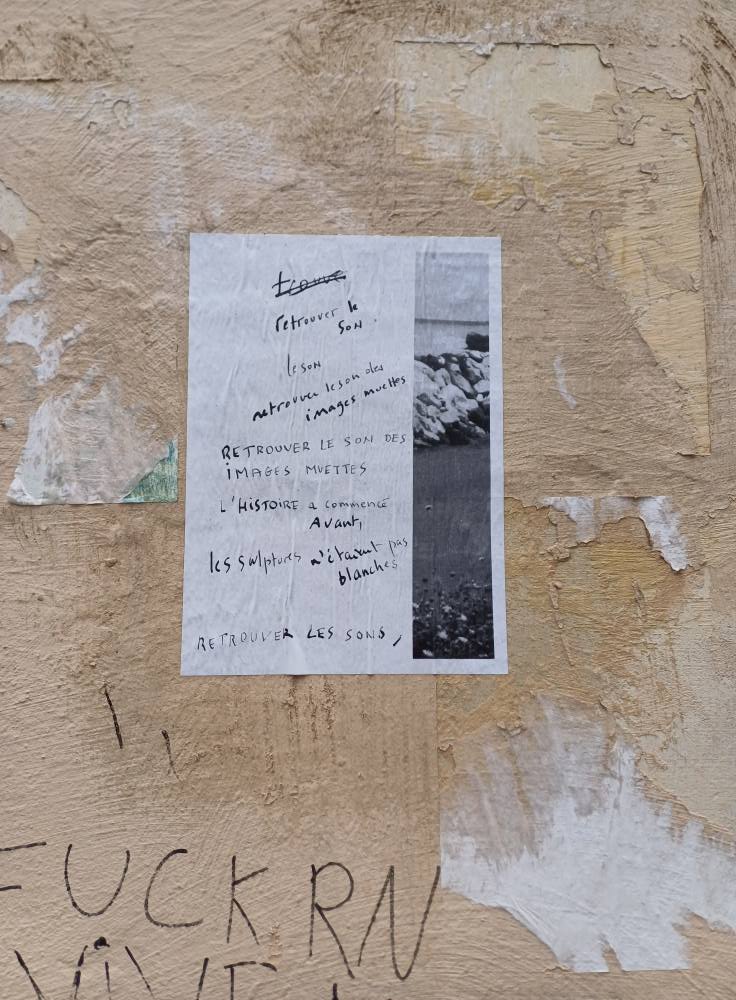 trouve
retrouver le
son.
le son
retrouver le son des
images muettes
RETROUVER LE SON DES
IMAGES MUETTES
L'HISTOIRE a commencé
Avant,
les sculptures n'étaient pas
blanches
RETROUVER LES SONS,
FUCK RN